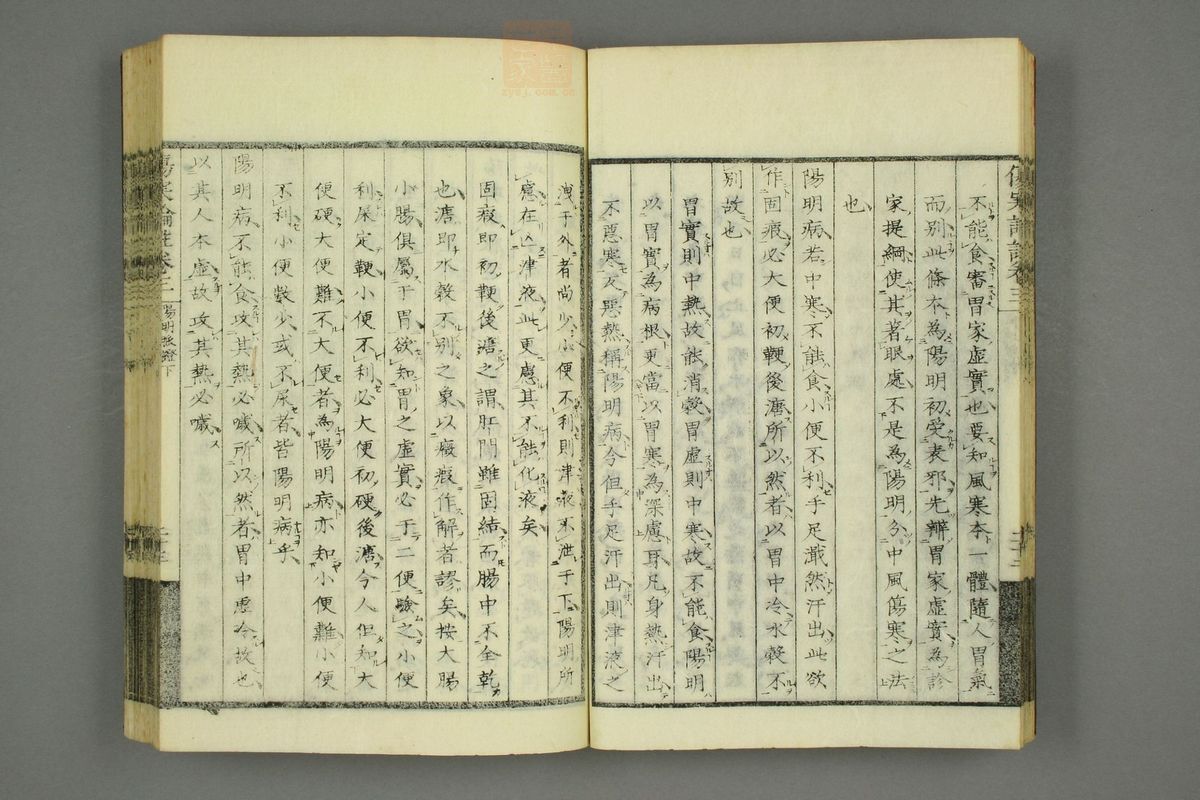 不能食審胃家虛實也要知風寒本一體隨人胃氣
而別此條本為陽明初受表邪先辯胃家虛實為診
家提綱使其著眼處不是為陽明分中風傷寒之法
也
陽明病若中寒不能食小便不利手足濈然汗出此欲
作固瘕必大便初鞕後溏所以然者以胃中冷水穀不
別故也
胃實則中熱故能消穀胃虛則中寒故不能食陽明
以胃實為病根更當以胃寒為深慮耳凡身熱汗出
不惡寒反惡熱稱陽明病今但手足汗出則津液之
洩于外者尚少小便不利則津液不泄于下陽明所
慮在亾津液此更慮其不能化液矣
固瘕即初鞕後溏之謂肝閒雖固結而腸中不全乾
也溏即水穀不別之象以癥瘕作解者謬矣按大腸
小腸俱屬于胃欲知胃之虛實必于二便驗之小便
利屎定鞕小便不利必大便初硬後溏今人但知大
便硬大便難不大便者為陽明病亦知小便難小便
不利小便數少或不尿者皆陽明病乎
陽明病不能食攻其熱必噦所以然者胃中虛冷故也
以其人本虛故攻其熱必噦
傷寒論註卷三
陽明脈證下
zysj.com.cn